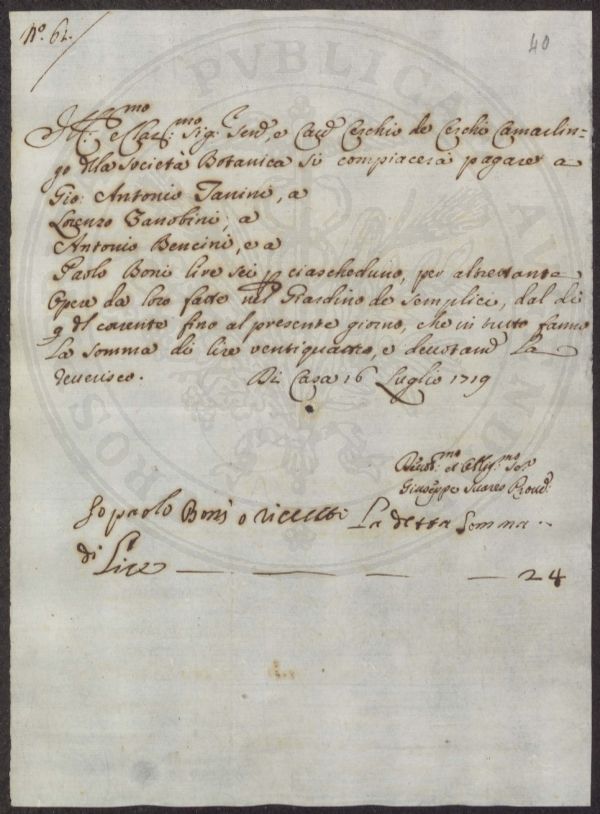 N.º 61.
40
Ill.mo e Clar.mo Sig.r Send., e Cav. Cerchio de Cerchi Camarlin=
go della Società Botanica si compiacerà pagare a
Gio: Antonio Tanini, a
Lorenzo Zanobini, a
Antonio Bencini, e a
Paolo Boni lire sei p ciascheduno, per altrettante
Opere da loro fatte nel Giardino de Semplici, dal dì
9 del corente fino al presente giorno, che in tutto fanno
La somma di lire ventiquattro, e devotam. La
reverisco. Di Casa 16 Luglio 1719
Devot.mo et Obb.mo Ser.
Giuseppe Suares Proved.
Io paolo Boni o riceuto La detta Somma
di Lire — — — — 24
PVBLICA
ROS